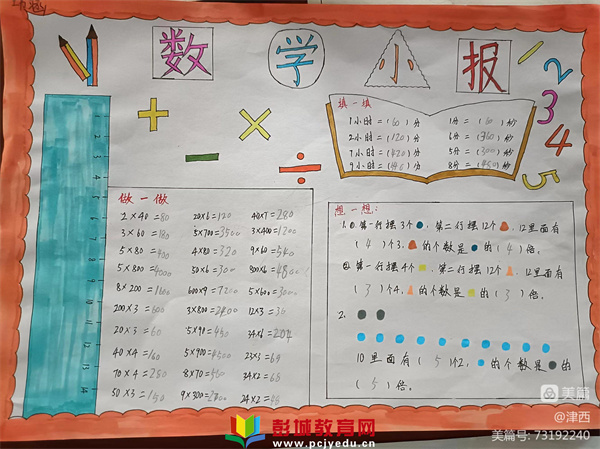 数学小报
+ × − ÷
1 2 3 4 5
填一填
1小时=(60)分 1分=(60)秒
2小时=(120)分 6分=(360)秒
7小时=(420)分 5分=(300)秒
9小时=( )分 8分=(480)秒
做一做
2×40=80 20×6=120 40×7=280
3×60=180 5×700=3500 3×400=1200
5×80=400 4×80=320 9×60=540
5×800=4000 50×6=300 800×6=4800
8×200=1600 600×9=7200 5×600=3000
200×3=600 3×800=2400 12×3=36
20×3=60 5×90=450 34×6=204
40×4=160 5×900=4500 23×3=69
70×4=280 8×70=560 34×2=68
50×3=150 9×300= 24×2=48
想一想:
1.①第一行摆3个 , 第二行摆12个 , 12里面有
(4)个3, 的个数是 的(4)倍。
②第一行摆4个 , 第二行摆12个 , 12里面有
(3)个4, 的个数是 的(3)倍。
2.
10里面有(5)个2, 的个数是 的
(5)倍。
1
2
3
4
5
6
7
8
9
10
11
12
13
14
彭城教育网
www.pcjyedu.cn
美篇
@津西
美篇号: 73192240